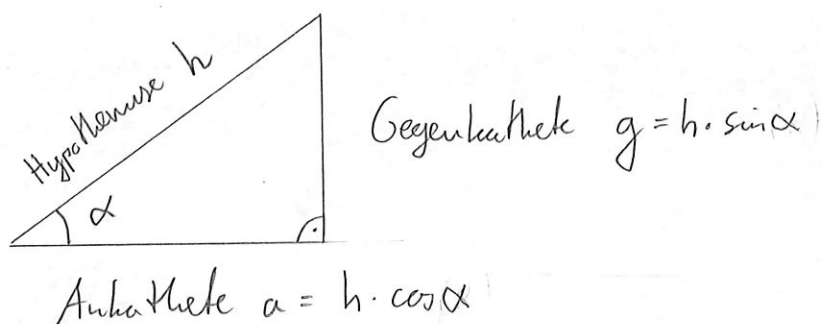 Hypothenuse h
Gegenkathete g = h · sin α
α
Ankathete a = h · cos α